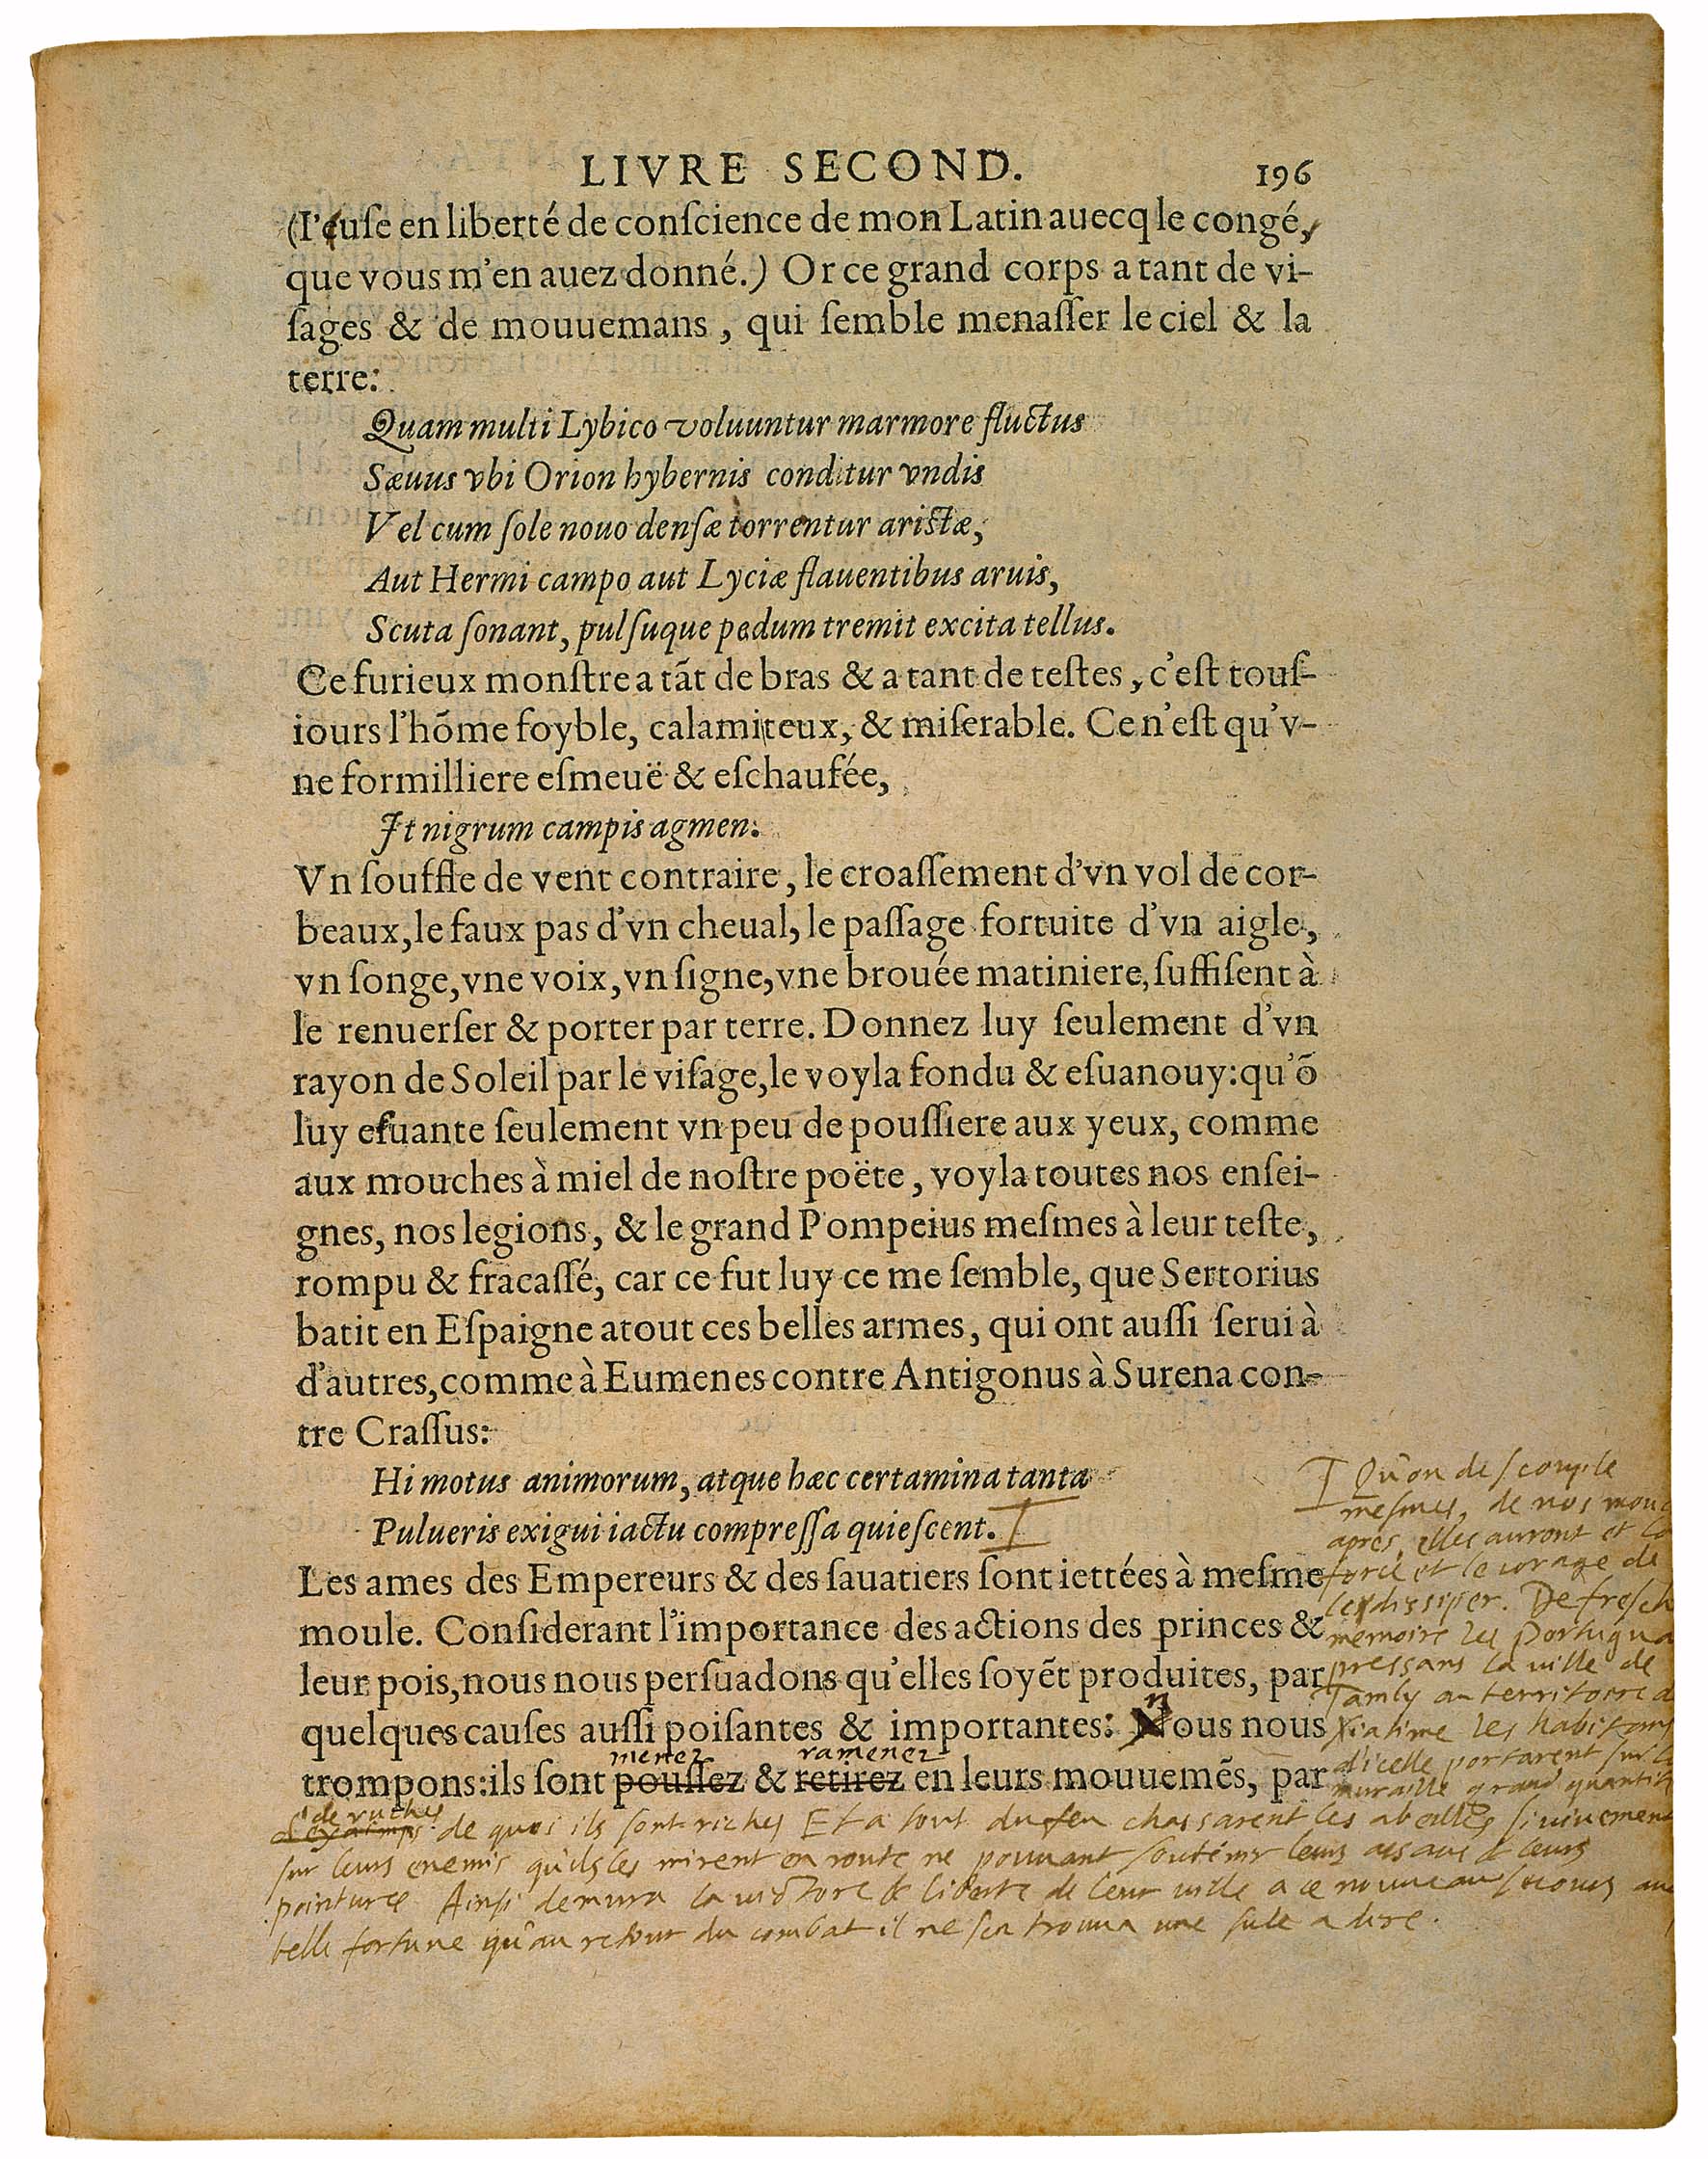 LIVRE SECOND. 196
(I'euſe en liberté de conſcience de mon Latin auecq le congé,
que vous m'en auez donné.) Or ce grand corps a tant de vi-
ſages & de mouuemans, qui ſemble menaſſer le ciel & la
terre:
Quam multi Lybico voluuntur marmore fluctus
Sæuus vbi Orion hybernis conditur vndis
Vel cum ſole nouo denſæ torrentur ariſtæ,
Aut Hermi campo aut Lyciæ flauentibus aruis,
Scuta ſonant, pulſuque pedum tremit excita tellus.
Ce furieux monſtre a tãt de bras & a tant de teſtes, c'eſt touſ-
iours l'hõme foyble, calamiteux, & miſerable. Ce n'eſt qu'v-
ne formilliere eſmeuë & eſchaufée,
It nigrum campis agmen:
Vn ſouffle de vent contraire, le croaſſement d'vn vol de cor-
beaux, le faux pas d'vn cheual, le paſſage fortuite d'vn aigle,
vn ſonge, vne voix, vn ſigne, vne brouée matiniere, ſuffiſent à
le renuerſer & porter par terre. Donnez luy ſeulement d'vn
rayon de Soleil par le viſage, le voyla fondu & eſuanouy: qu'õ
luy eſuante ſeulement vn peu de pouſſiere aux yeux, comme
aux mouches à miel de noſtre poëte, voyla toutes nos enſei-
gnes, nos legions, & le grand Pompeius meſmes à leur teſte,
rompu & fracaſſé, car ce fut luy ce me ſemble, que Sertorius
batit en Eſpaigne atout ces belles armes, qui ont auſſi ſerui à
d'autres, comme à Eumenes contre Antigonus à Surena con-
tre Craſſus:
Hi motus animorum, atque hæc certamina tanta
Pulueris exigui iactu compreſſa quieſcent.
Les ames des Empereurs & des ſauatiers ſont iettées à meſme
moule. Conſiderant l'importance des actions des princes &
leur pois, nous nous perſuadons qu'elles ſoyẽt produites, par
quelques cauſes auſſi poiſantes & importantes: nous nous
menez ramenez
trompons: ils ſont pouſſez & retirez en leurs mouuemẽs, par
Qu'on descouple
mesmes, de nos mouc
apres, elles auront et la
force et le corage de
les dissiper. De fresch
memoire les Portugua
pressans la ville de
Tamly au territoire d
Xiatime les habitans
d'icelle portarent sur la
muraille grand quantit
de ruches
de quoi ils sont riches Et a tout du feu chassarent les abeilles si viuement
sur leurs enemis qu'ils les mirent en route ne pouuant soutenir leurs assaus & leurs
pointures Ainsi demura la victoire & liberte de leur ville a ce nouueau secours au
belle fortune qu'au retour du combat il ne s'en trouua une sule a dire.